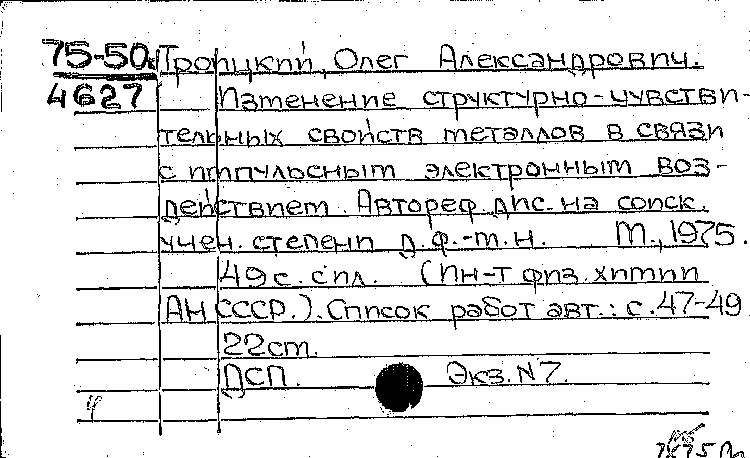 75-50к Троицкий, Олег Александрович.
4627 Изменение структурно-чувстви-
тельных свойств металлов в связи
с импульсным электронным воз-
действием. Автореф. дис. на соиск.
учен. степени д.ф.-м.н. М., 1975.
49 с. с ил. (Ин-т физ. химии
АН СССР.). Список работ авт.: с. 47-49
22см.
ДСП. Экз. N 7.